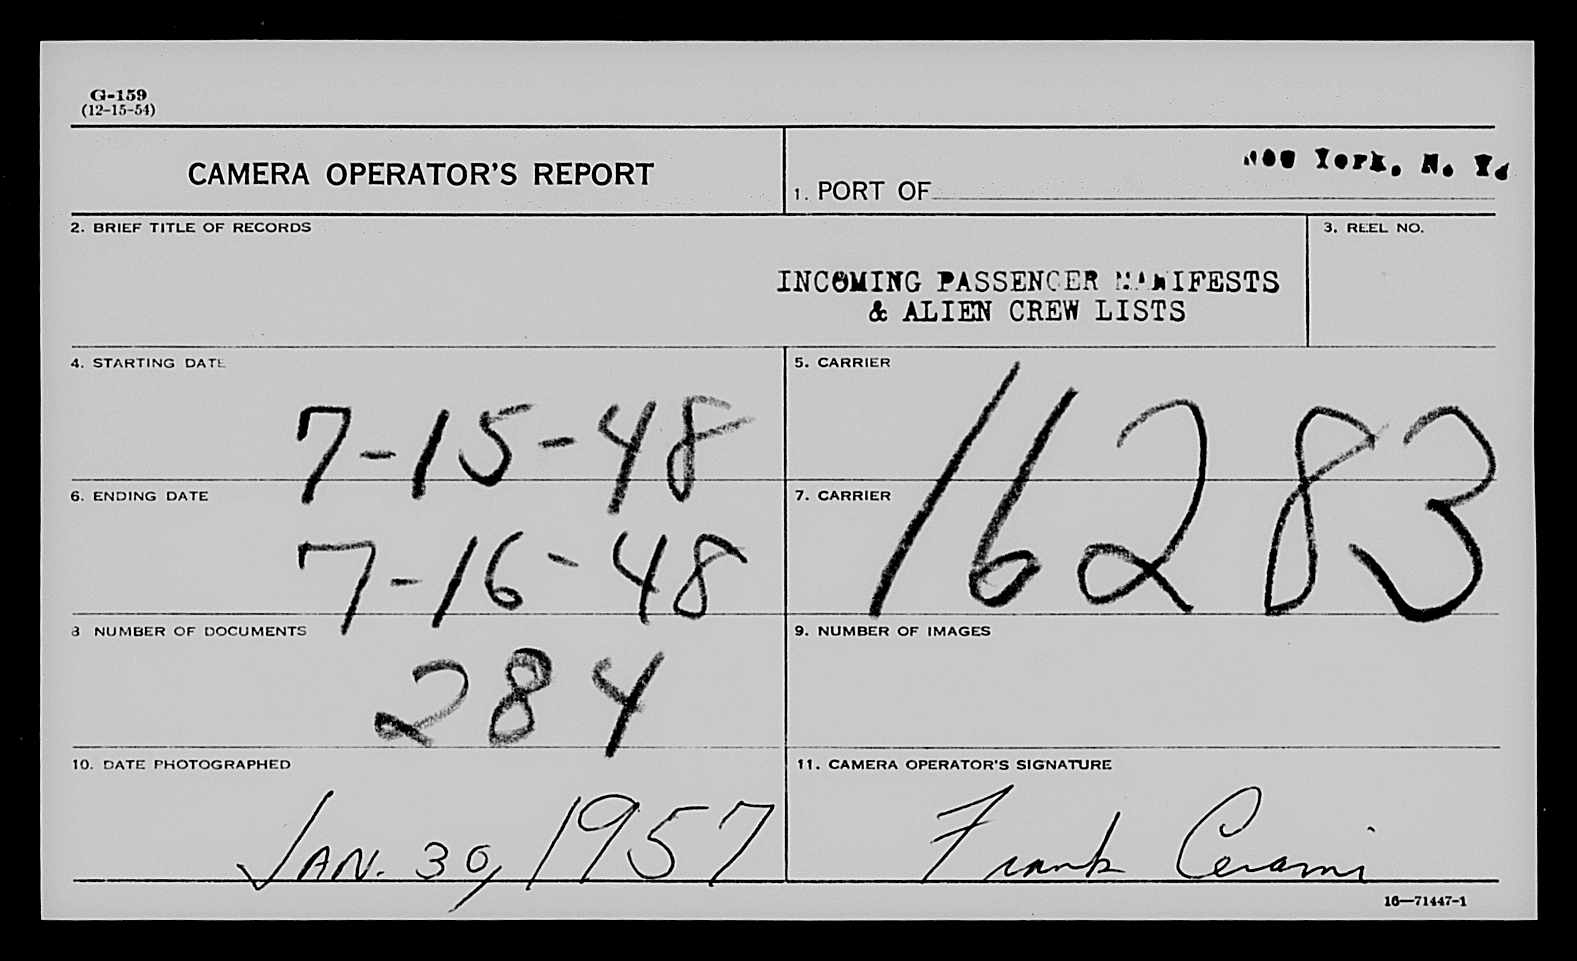 G-159
(12-15-54)
CAMERA OPERATOR'S REPORT
1. PORT OF New York, N. Y.
2. BRIEF TITLE OF RECORDS
INCOMING PASSENGER MANIFESTS
& ALIEN CREW LISTS
3. REEL NO.
4. STARTING DATE
7-15-48
5. CARRIER
16283
6. ENDING DATE
7-16-48
7. CARRIER
8 NUMBER OF DOCUMENTS
284
9. NUMBER OF IMAGES
10. DATE PHOTOGRAPHED
JAN. 30, 1957
11. CAMERA OPERATOR'S SIGNATURE
Frank Cerami
16—71447-1